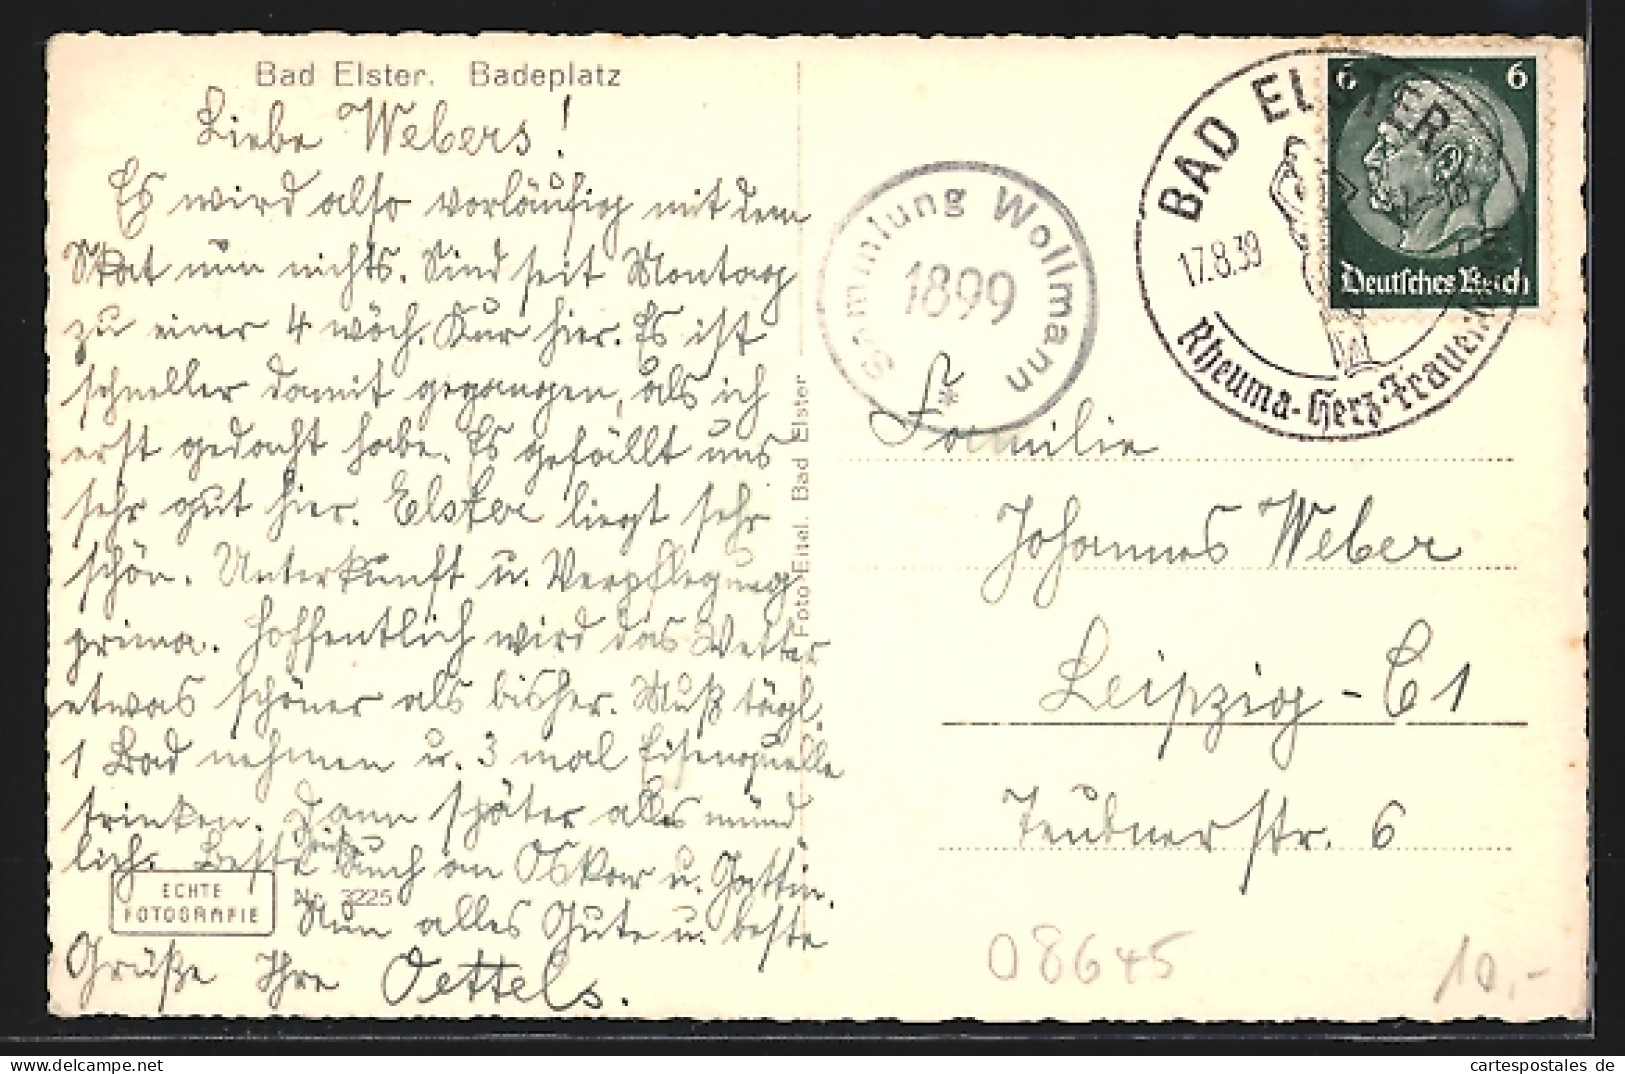 Bad Elster. Badeplatz
Liebe Webers!
Es wird also vorläufig mit dem
Skat nun nichts. Sind seit Montag
zu einer 4 wöch. Kur hier. Es ist
schneller damit gegangen, als ich
erst gedacht habe. Es gefällt uns
sehr gut hier. Elster liegt sehr
schön. Unterkunft u. Verpflegung
prima. Hoffentlich wird das Wetter
etwas schöner als bisher. Muß tägl.
1 Bad nehmen u. 3 mal Eisenquelle
trinken. Dann später alles münd
lich. Beste Grüße auch an Oskar u. Gattin.
Nun alles Gute u. beste
Grüße Ihre Oettels.
ECHTE
FOTOGRAFIE
No. 3225
Foto Eitel. Bad Elster
Sammlung Wollmann
1899
*
BAD ELSTER
17.8.39
Rheuma-Herz-Frauen
6 6
Deutsches Reich
Familie
Johannes Weber
Leipzig - C 1
Teubnerstr. 6
08645
10,-
cartespostales de